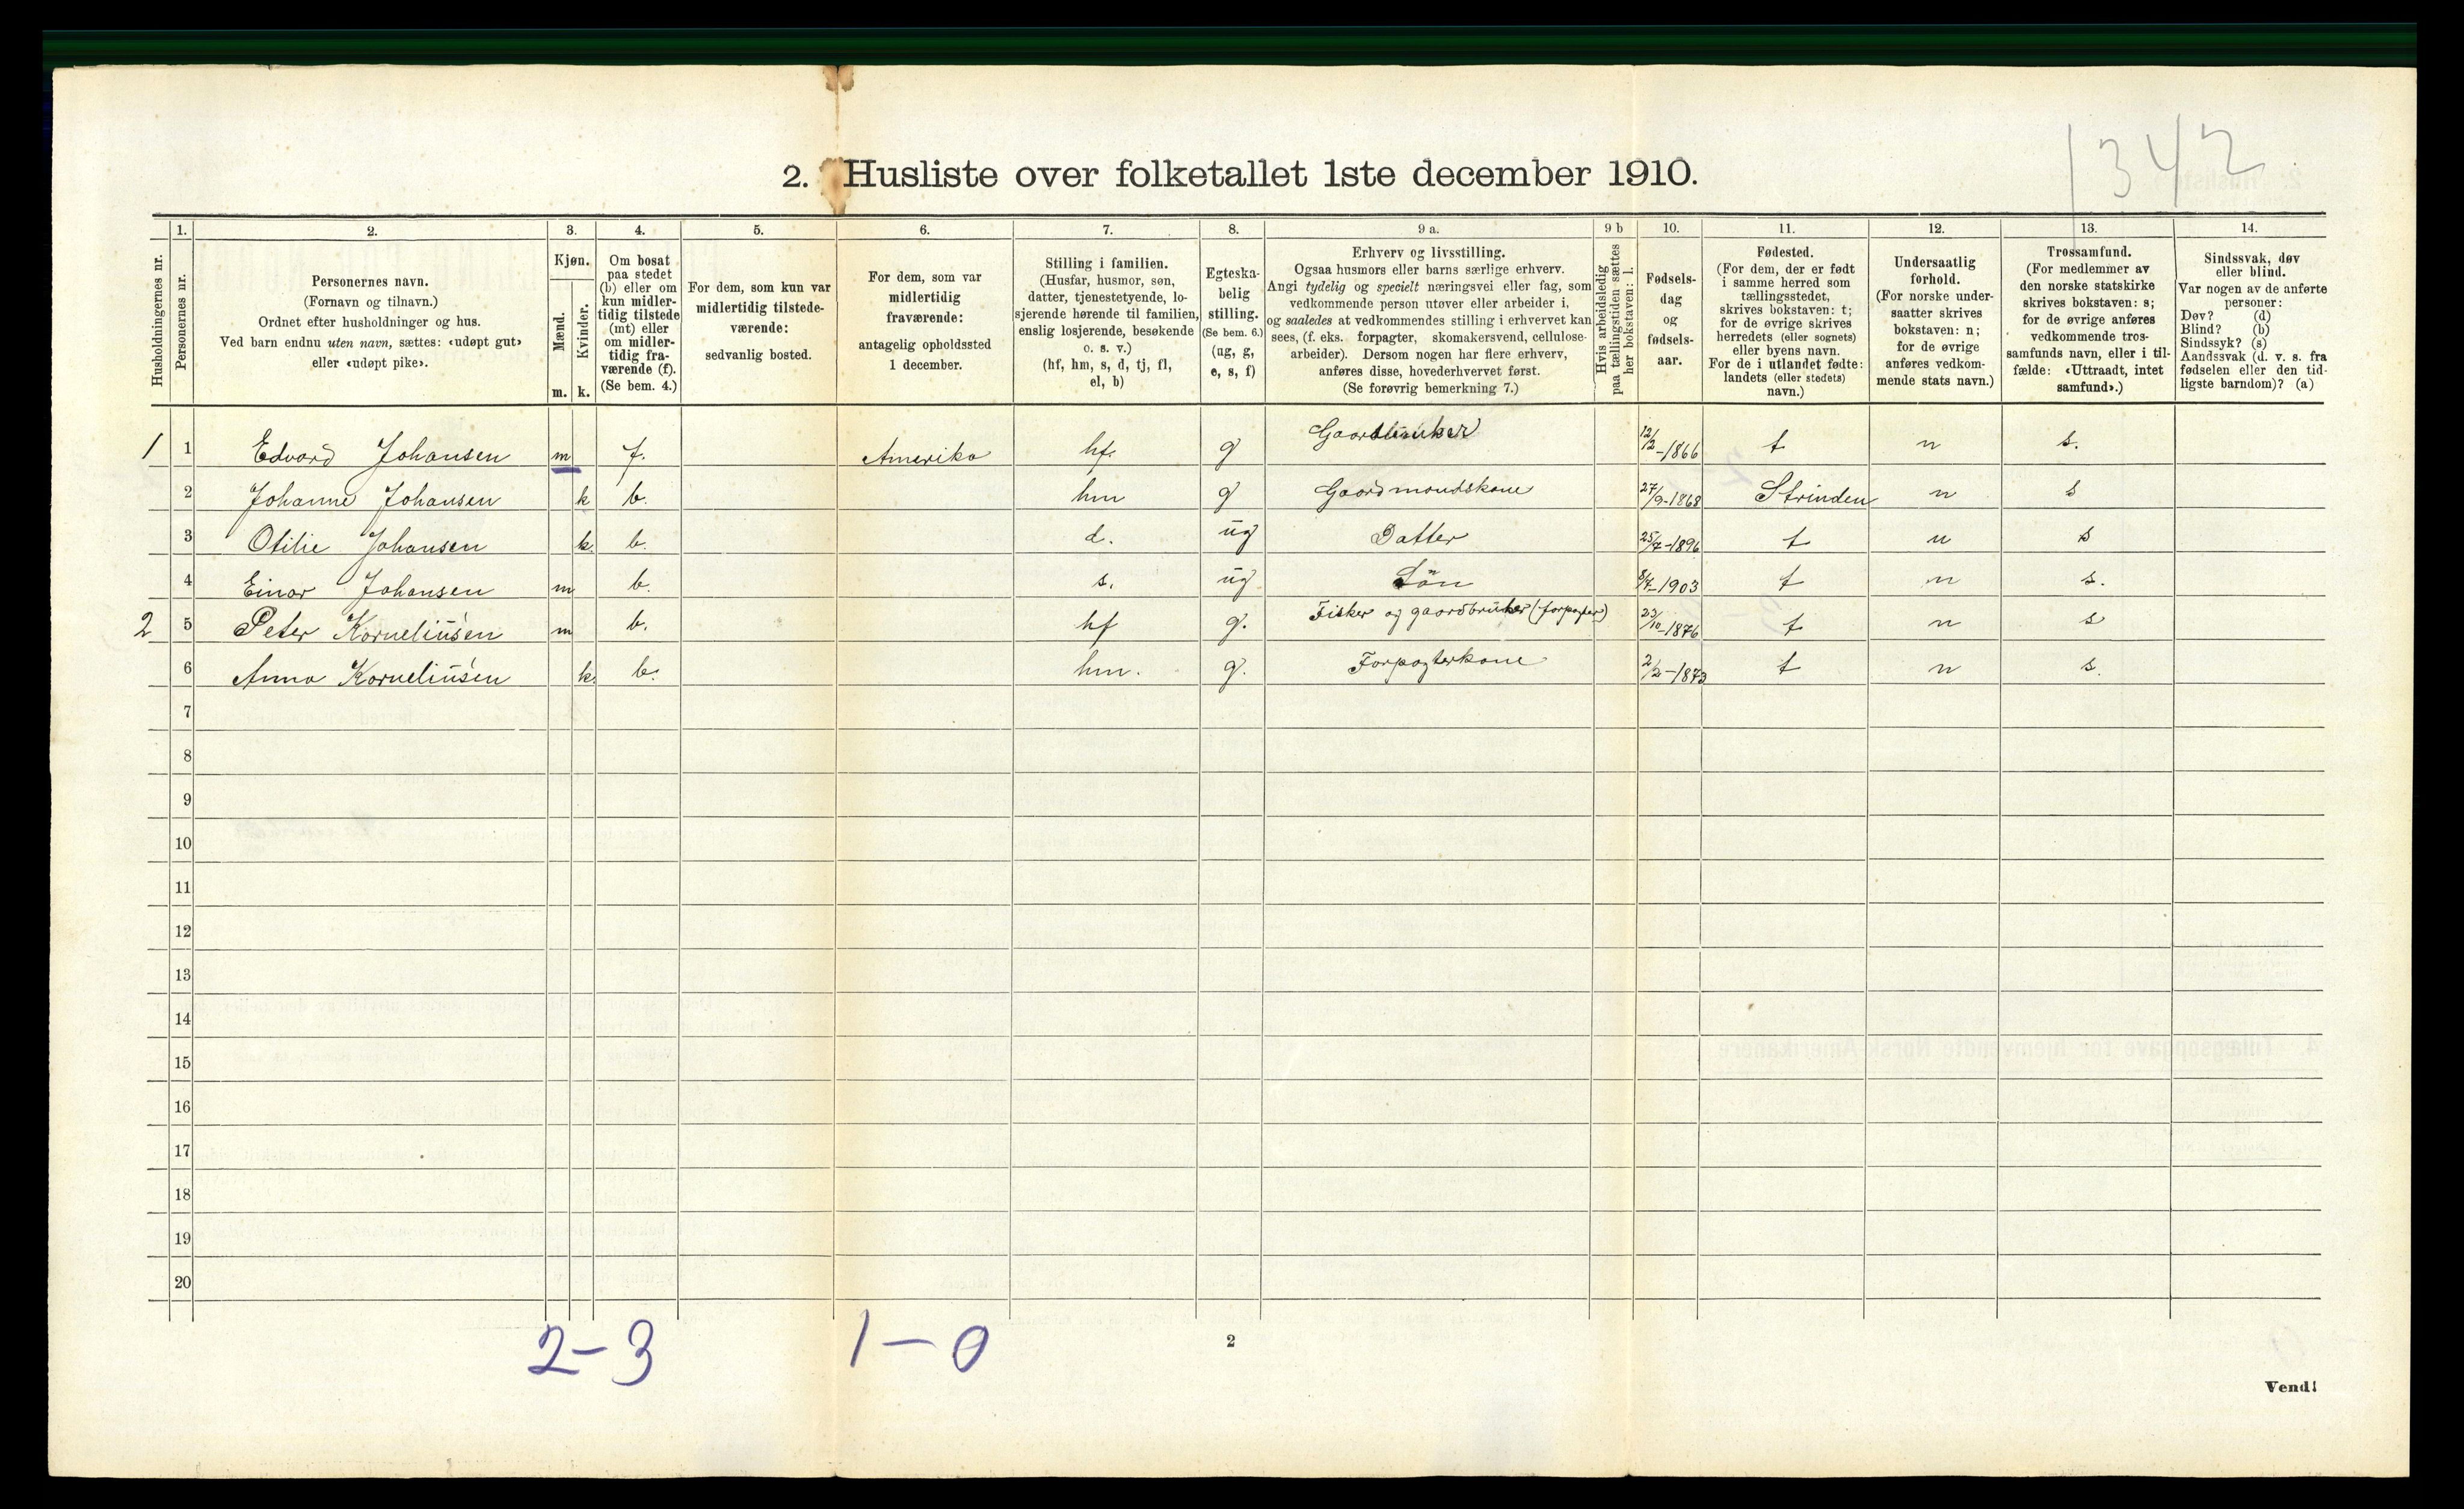 1342
2. Husliste over folketallet 1ste december 1910.
Husholdningernes nr.
1.
Personernes nr.
2.
Personernes navn.
(Fornavn og tilnavn.)
Ordnet efter husholdninger og hus.
Ved barn endnu uten navn, sættes: «udøpt gut»
eller «udøpt pike».
3.
Kjøn.
Mænd.
Kvinder.
m. k.
4.
Om bosat
paa stedet
(b) eller om
kun midler-
tidig tilstede
(mt) eller
om midler-
tidig fra-
værende (f).
(Se bem. 4.)
5.
For dem, som kun var
midlertidig tilstede-
værende:
sedvanlig bosted.
6.
For dem, som var
midlertidig
fraværende:
antagelig opholdssted
1 december.
7.
Stilling i familien.
(Husfar, husmor, søn,
datter, tjenestetyende, lo-
sjerende hørende til familien,
enslig losjerende, besøkende
o. s. v.)
(hf, hm, s, d, tj, fl,
el, b)
8.
Egteska-
belig
stilling.
(Se bem. 6.)
(ug, g,
e, s, f)
9 a.
Erhverv og livsstilling.
Ogsaa husmors eller barns særlige erhverv.
Angi tydelig og specielt næringsvei eller fag, som
vedkommende person utøver eller arbeider i,
og saaledes at vedkommendes stilling i erhvervet kan
sees, (f. eks. forpagter, skomakersvend, cellulose-
arbeider). Dersom nogen har flere erhverv,
anføres disse, hovederhvervet først.
(Se forøvrig bemerkning 7.)
9 b
Hvis arbeidsledig
paa tællingstiden sættes
her bokstaven: l.
10.
Fødsels-
dag
og
fødsels-
aar.
11.
Fødested.
(For dem, der er født
i samme herred som
tællingsstedet,
skrives bokstaven: t;
for de øvrige skrives
herredets (eller sognets)
eller byens navn.
For de i utlandet fødte:
landets (eller stedets)
navn.)
12.
Undersaatlig
forhold.
(For norske under-
saatter skrives
bokstaven: n;
for de øvrige
anføres vedkom-
mende stats navn.)
13.
Trossamfund.
(For medlemmer av
den norske statskirke
skrives bokstaven: s;
for de øvrige anføres
vedkommende tros-
samfunds navn, eller i til-
fælde: «Uttraadt, intet
samfund».)
14.
Sindssvak, døv
eller blind.
Var nogen av de anførte
personer:
Døv? (d)
Blind? (b)
Sindssyk? (s)
Aandssvak (d. v. s. fra
fødselen eller den tid-
ligste barndom)? (a)
1 1 Edvard Johansen m f. Amerika hf. g Gaardbruker 12/12-1866 t n s.
2 Johanne Johansen k b. hm g Gaardmandskone 27/9-1868 Strinden n s
3 Otilie Johansen k. b. d. ug Datter 25/7-1896 t n s
4 Einar Johansen m b. s. ug Sön 8/7-1903 t n s.
2 5 Peter Korneliusen m b. hf g. Fisker og gaardbruker (forpagter) 23/10-1876 t n s
6 Anna Korneliusen k. b. hm. g. Forpagterkone 2/2-1873 t n s.
7
8
9
10
11
12
13
14
15
16
17
18
19
20
2-3 1-0
2
Vend!